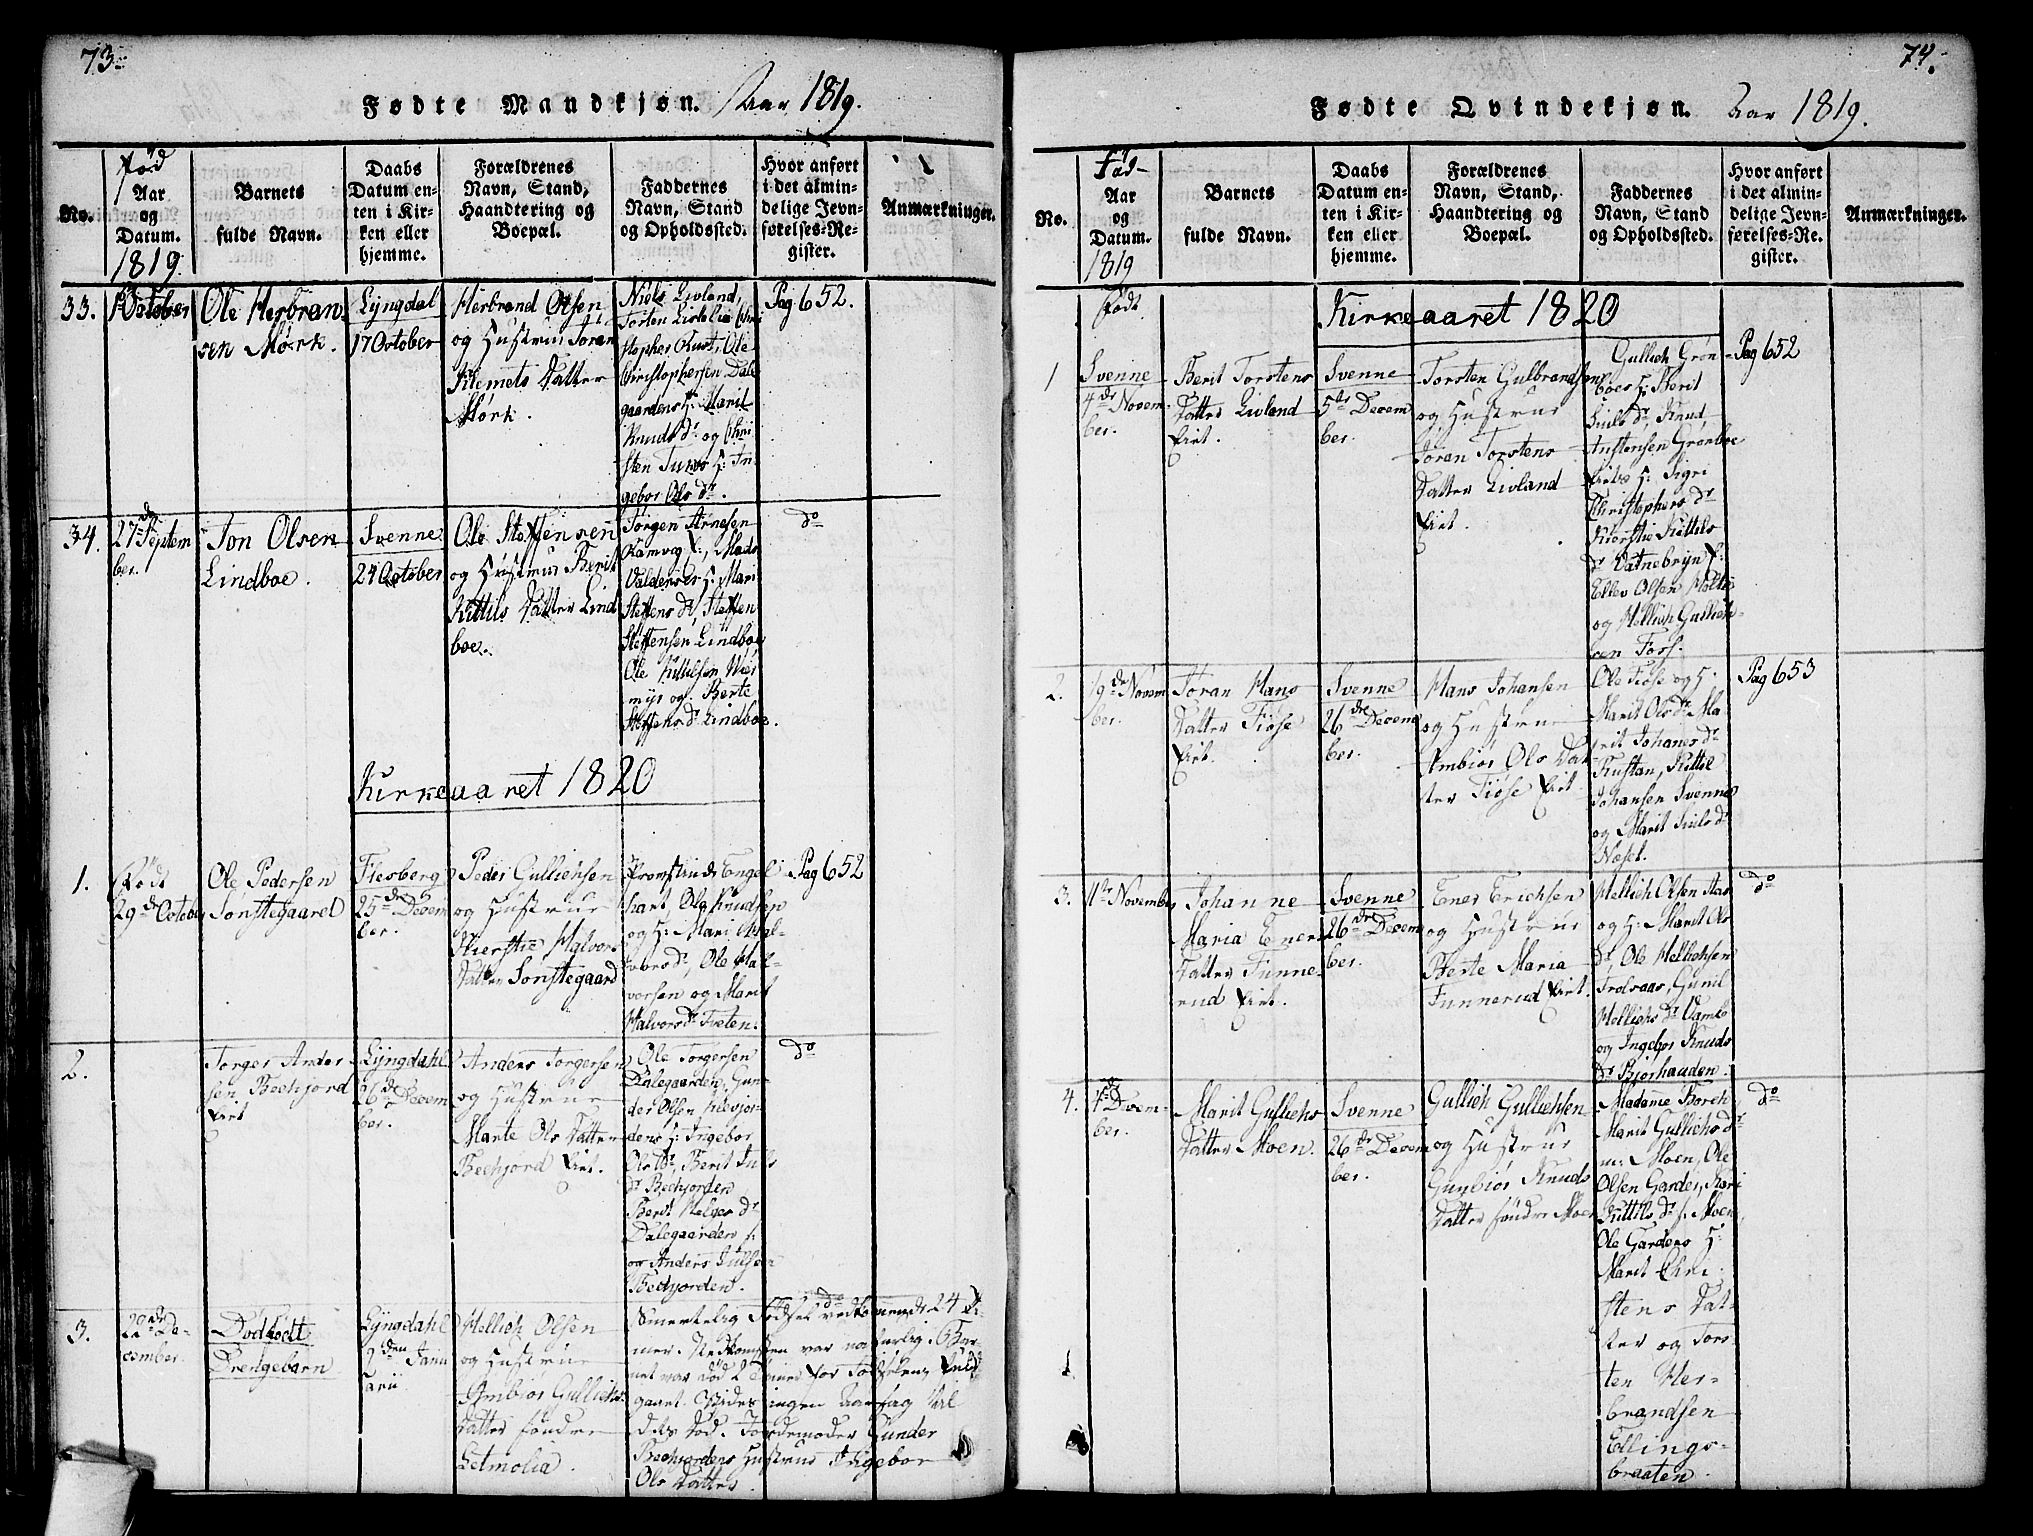 73
Fødte Mandkjøn. Aar 1819.
No.
Fød
Aar
og
Datum.
1819
Barnets
fulde Navn.
Daabs
Datum en-
ten i Kir-
ken eller
hjemme.
Forældrenes
Navn, Stand,
Haandtering og
Boepæl.
Faddernes
Navn, Stand
og Opholdssted.
Hvor anført
i det almin-
delige Jevn-
førelses-Re-
gister.
Anmærkninger.
33.
October
Ole Herbran
sen Mørk.
Lyngdal
17 October
Herbrand Olsen
og Hustrue Jøran
Klemets Datter
Mørk.
Niels Livland,
Torsten Listelie Chri
stopher Rust, Ole
Christophersen Dale
gaardens H: Marit
Knuds Dr og Chri
sten Tufts H: In
gebor Ols Dr.
Pag 652.
34.
27de Septem
ber.
Jon Olsen
Lindboe.
Svenne
24 October
Ole Steffensen
og Hustrue Berit
Kittils Datter Lind
boe.
Jørgen Arnesen
Mads
Valdernes H: Mari
Steffens Dr, Steffen
Steffensen Lindboe
Ole Kittilsen
myr og Berte
Steffens Dr Lindboe.
do
Kirkeaaret 1820
1.
Født
29de October
Ole Pedersen
Sønstegaard
Flesberg
25de Decem
ber.
Peder Gulliehsen
og Hustrue
Kierstie Halvors
Datter Sønstegaard
Engel
hart Ole Knudsen
og H: Mari Hal-
vors Dr, Ole Hal-
vorsen og Marit
Halvors Dr Tveten.
Pag 652
2.
Torger Ander
sen Bechjord
Eiet
Lyngdahl
26de Decem
ber.
Anders Torgersen
og Hustrue
Marte Ols Datter
Bechjord Eiet.
Ole Torgersen
Dalegaarden, Gun-
der Olsen Klevjor-
dens H: Ingebor
Ols Dr, Berit Juls
Dr Bechjorden
Berit Helges Dr
Dalegaarden
og Anders Julsen
Bechjorden.
do
3.
22de De-
cember.
Dødfødt
Drengebarn
Lyngdahl
9den Janu
arii
Hellich Olsen
og Hustrue
Gunbiør Gulliehs
Datter
Letmolia.
Smertelig Fødsel vedkomende 24 Ti-
mer. Nedkomsten var naturlig. Bar
net var død 2 Timer før Fødselen, Fuld
gaaet. Vides ingen Aarsag til
dets Død. Jordemoder Gunder
Bechjordens Hustrue Ingebor
Ols Datter.
do
74.
Fødte Qvindekjøn. Aar 1819.
No.
Fød
Aar
og
Datum.
1819
Barnets
fulde Navn.
Daabs
Datum en-
ten i Kir-
ken eller
hjemme.
Forældrenes
Navn, Stand,
Haandtering og
Boepæl.
Faddernes
Navn, Stand
og Opholdssted.
Hvor anført
i det almin-
delige Jevn-
førelses-Re-
gister.
Anmærkninger.
Født
Kirkeaaret 1820
1
Svenne
4de Novem
ber.
Berit Torstens
Datter Livland
Eiet.
Svenne
5te Decem
ber.
Torsten Gulbrandsen
og Hustrue
Jøran Torstens
Datter Livland
Eiet.
Gullich Grøn-
boes H: Berit
Juls Dr, Knud
Austensen Grønboe
Eiets H: Sigri
Christophers Dr
Kierstie Kittils
Dr Vatnebryn
Ellev Olsen
og Hellich Gullich-
sen Fosf.
Pag 652
2.
19de Novem
ber.
Jøran Hans
Datter Fiøse
Eiet.
Svenne
26de Decem
ber.
Hans Johansen
og Hustrue
Ambiør Ols Dat
ter Fiøse Eiet.
Ole Fiøse og H:
Marit Ols Dr Ma
rit Johanes Dr
Rustan, Kittil
Johansen Svenne
og Marit Juels Dr
Næset.
Pag 653
3.
11te November
Johanne
Maria Eners
Datter Funne-
rud Eiet.
Svenne
26de Decem
ber.
Ener Erichsen
og Hustrue
Berte Maria
Funnerud Eiet.
Hellich Olsen Aas
og H: Marit Ols
Dr Ole Hellichsen
Trolsaas, Gunil
Hellichs Dr
og Ingebor Knuds
Dr Bjørhauden.
do
4.
Decem-
ber.
Marit Gullichs
Datter Moen.
Svenne
26de Decem
ber.
Gullich Gullichsen
og Hustrue
Gunbiør Knuds
Datter søndre Moen
Madame Borch
Marit Gullichs Dr
Moen, Ole
Olsen Garder, Kari
Kittils Dr Moen,
Ole Garders H:
Marit Chri
stens Dat-
ter og Tors-
ten Her-
brandsen
Ellings-
braaten.
do